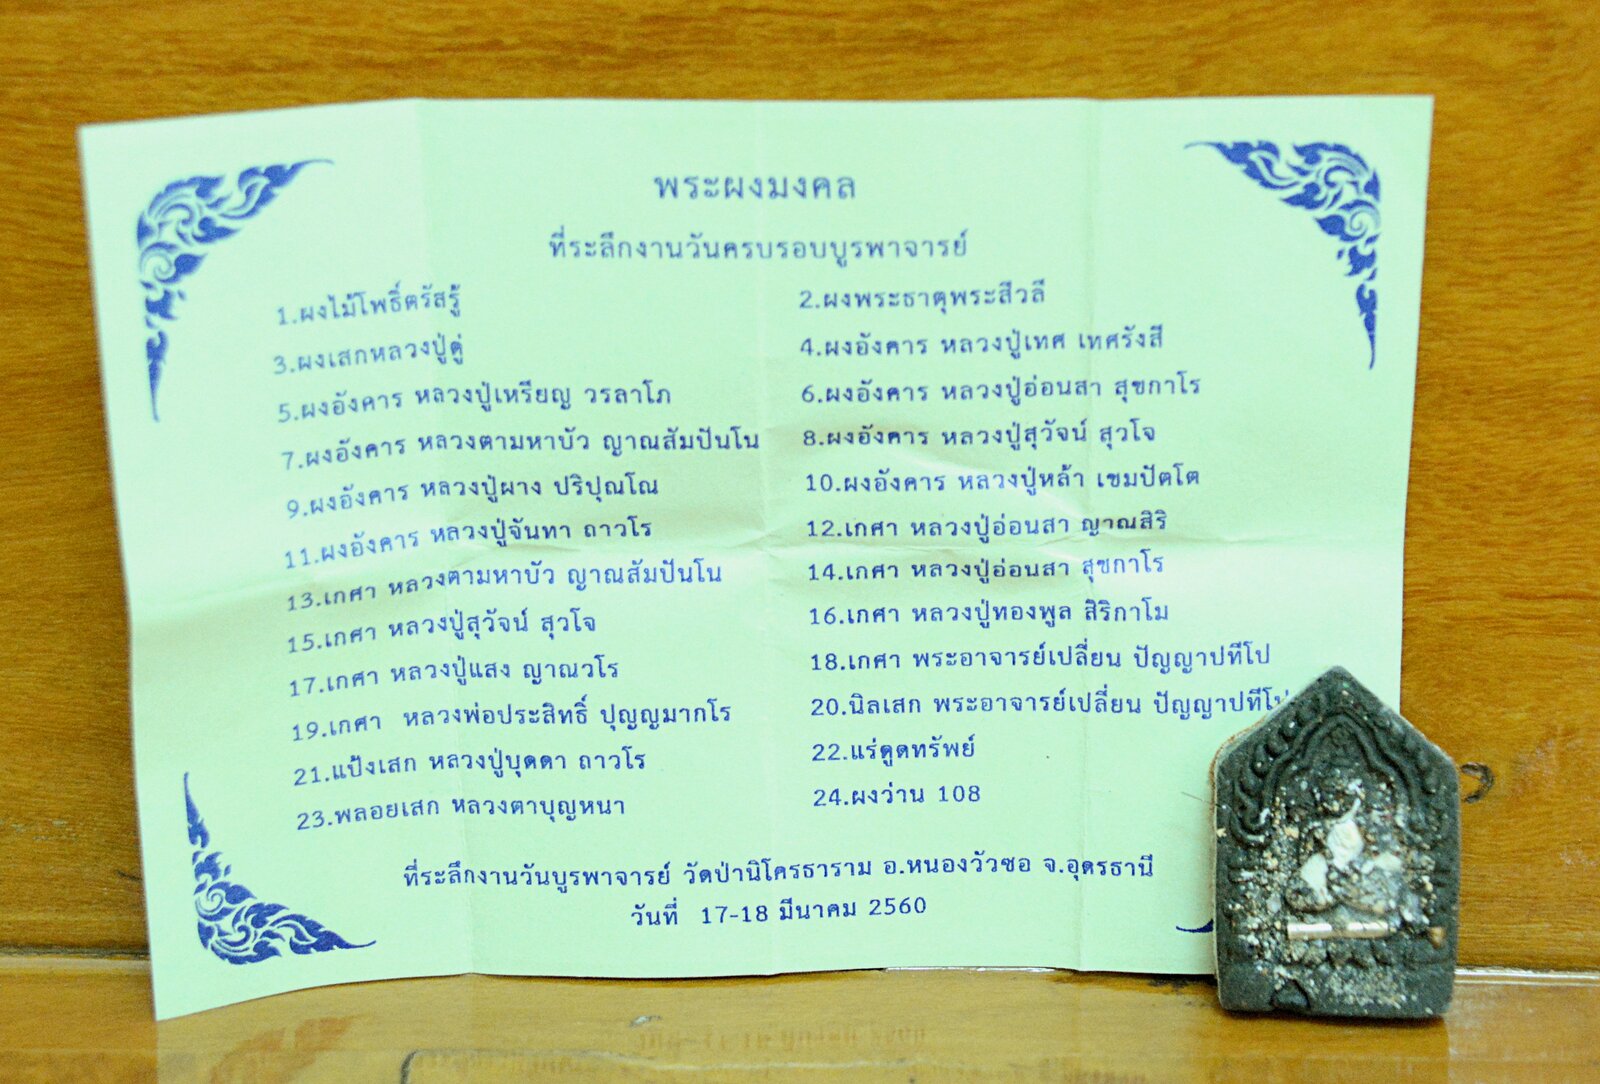 พระผงมงคล
ที่ระลึกงานวันครบรอบบูรพาจารย์
1.ผงไม้โพธิ์ตรัสรู้ 2.ผงพระธาตุพระสีวลี
3.ผงเสกหลวงปู่ดู่ 4.ผงอังคาร หลวงปู่เทศ เทศรังสี
5.ผงอังคาร หลวงปู่เหรียญ วรลาโภ 6.ผงอังคาร หลวงปู่อ่อนสา สุขกาโร
7.ผงอังคาร หลวงตามหาบัว ญาณสัมปันโน 8.ผงอังคาร หลวงปู่สุวัจน์ สุวโจ
9.ผงอังคาร หลวงปู่ผาง ปริปุณโณ 10.ผงอังคาร หลวงปู่หล้า เขมปัตโต
11.ผงอังคาร หลวงปู่จันทา ถาวโร 12.เกศา หลวงปู่อ่อนสา ญาณสิริ
13.เกศา หลวงตามหาบัว ญาณสัมปันโน 14.เกศา หลวงปู่อ่อนสา สุขกาโร
15.เกศา หลวงปู่สุวัจน์ สุวโจ 16.เกศา หลวงปู่ทองพูล สิริกาโม
17.เกศา หลวงปู่แสง ญาณวโร 18.เกศา พระอาจารย์เปลี่ยน ปัญญาปทีโป
19.เกศา หลวงพ่อประสิทธิ์ ปุญญมากโร 20.นิลเสก พระอาจารย์เปลี่ยน ปัญญาปทีโป
21.แป้งเสก หลวงปู่บุดดา ถาวโร 22.แร่ดูดทรัพย์
23.พลอยเสก หลวงตาบุญหนา 24.ผงว่าน 108
ที่ระลึกงานวันบูรพาจารย์ วัดป่านิโครธาราม อ.หนองวัวซอ จ.อุดรธานี
วันที่ 17-18 มีนาคม 2560